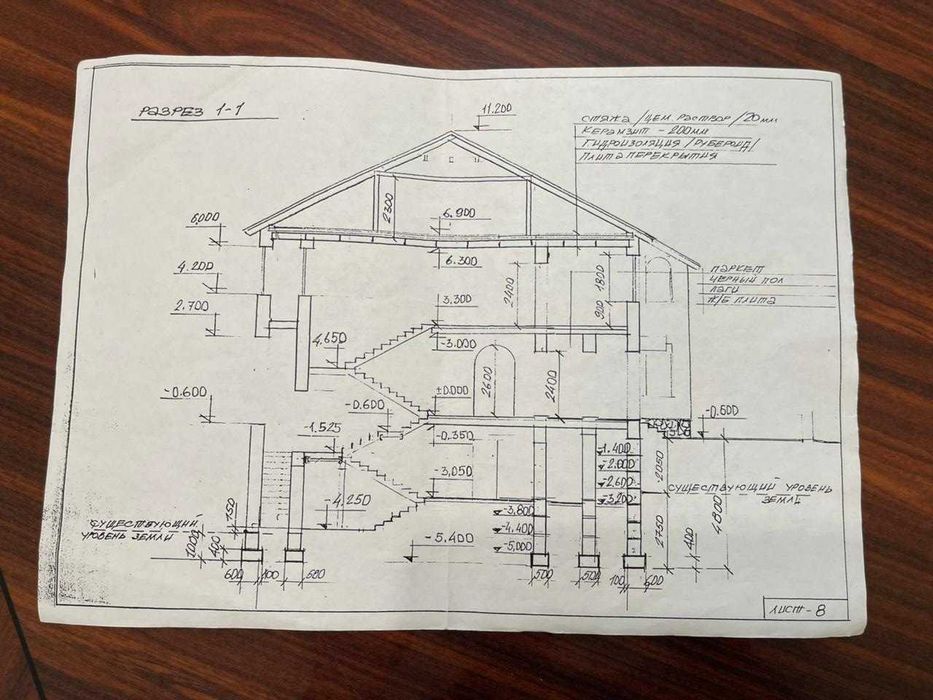 РАЗРЕЗ 1-1
11.200
СТЯЖКА /ЦЕМ. РАСТВОР/ 20мм
КЕРАМЗИТ - 200мм
ГИДРОИЗОЛЯЦИЯ /РУБЕРОИД/
ПЛИТА ПЕРЕКРЫТИЯ
2300
6.000
6.900
6.300
4.200
2400
1800
ПАРКЕТ
ЧЕРНЫЙ ПОЛ
ЛАГИ
Ж/Б ПЛИТА
2.700
3.300
900
4.650
-3.000
2600
2400
-0.600
±0.000
-0.600
-0.600
-1.525
-0.350
-1.400
-2.000
2050
-3,050
-2.600
-3.200
СУЩЕСТВУЮЩИЙ УРОВЕНЬ
ЗЕМЛИ
-4.250
-3.800
-4.400
-5,000
4800
СУЩЕСТВУЮЩИЙ
УРОВЕНЬ ЗЕМЛИ
750
1000
400
-5.400
2750
400
600
100
500
500
500
100
600
ЛИСТ-8